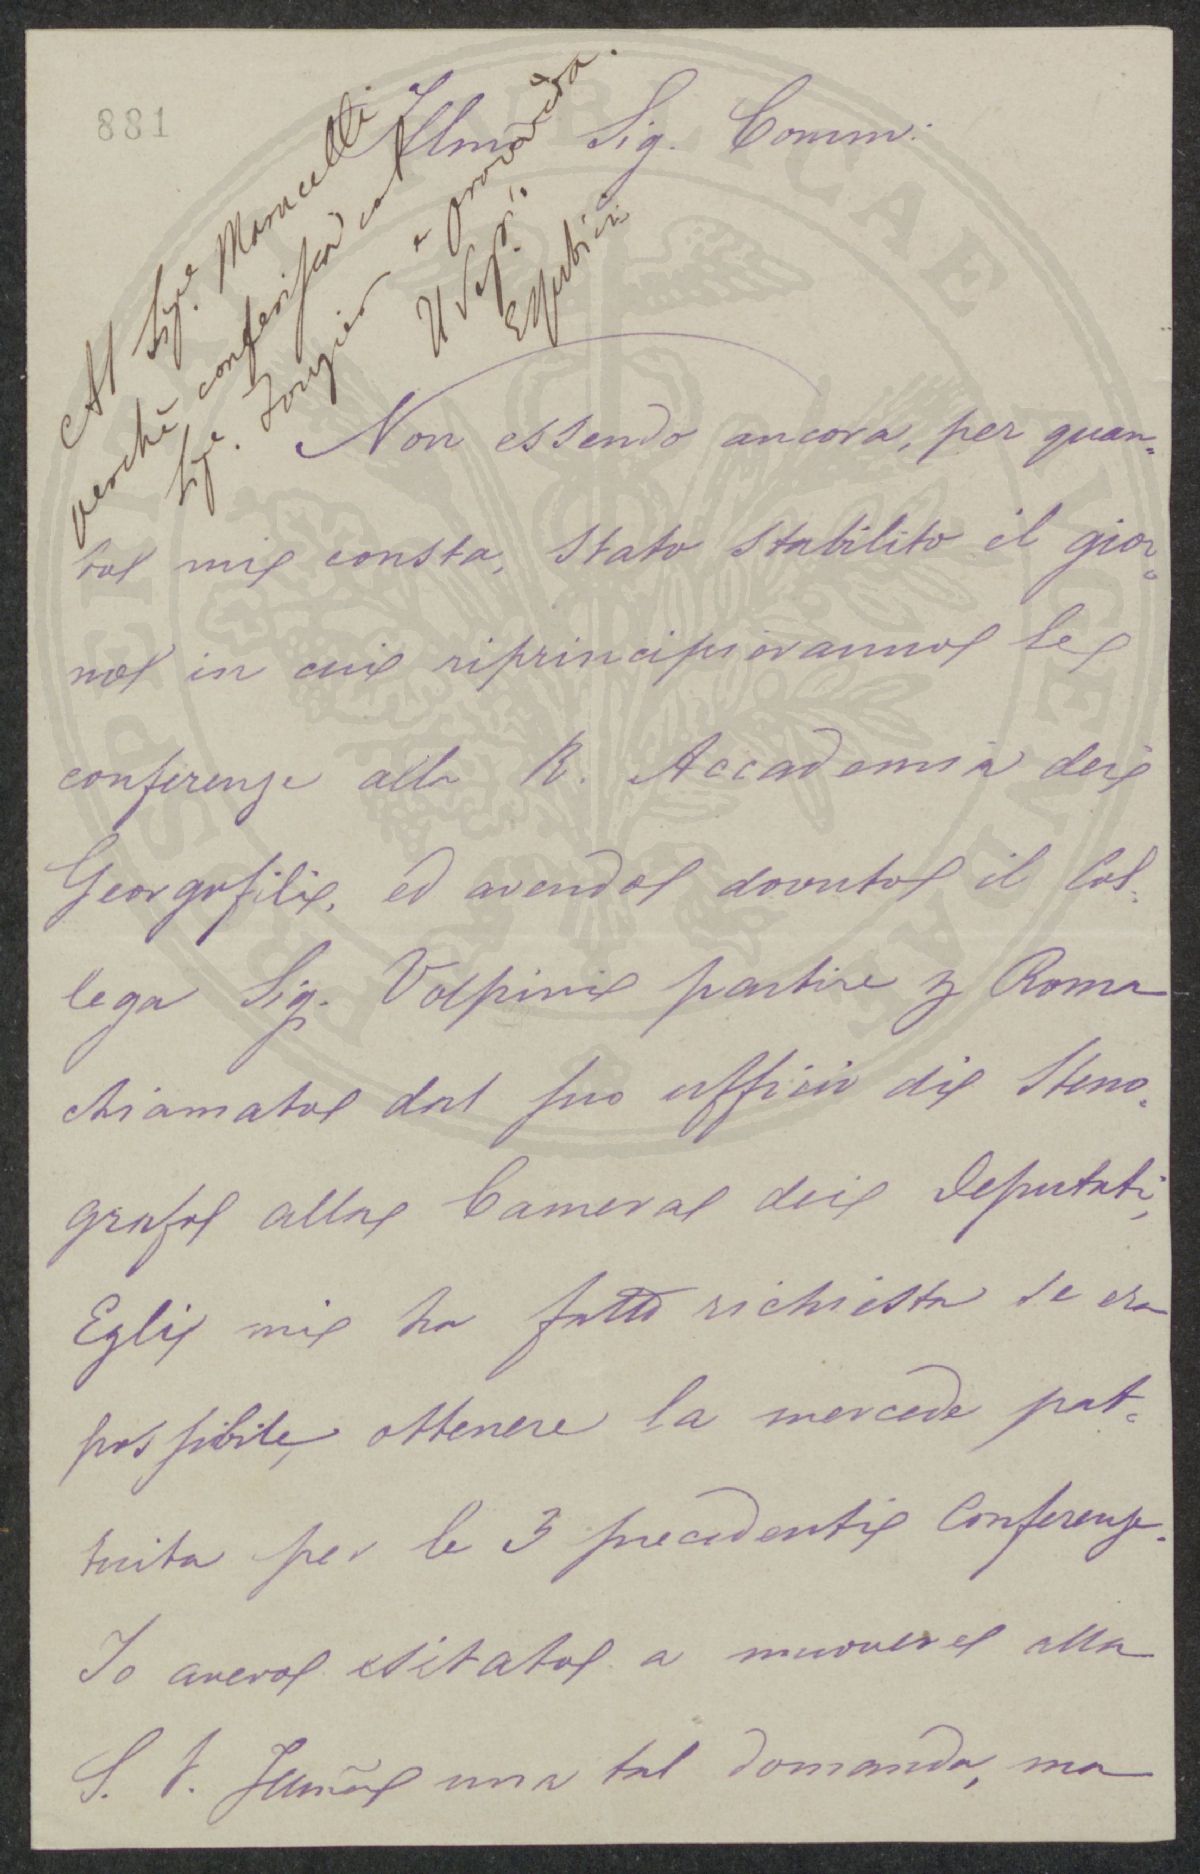 881
Al Sigre Marucelli
perchè conferisca col
Sigr. Fougier e provveda.
Il Segr.
Illmo Sig. Comm:
Non essendo ancora, per quan=
to mi consta, stato stabilito il gior=
no in cui riprincipieranno le
conferenze alla R. Accademia dei
Georgofili, ed avendo dovuto il Col=
lega Sig. Volpini partire p Roma
chiamato dal suo ufficio di Steno=
grafo alla Camera dei Deputati,
Egli mi ha fatto richiesta se era
possibile, ottenere la mercede pat=
tuita per le 3 precedenti Conferenze.
Io avevo esitato a muovere alla
S. V. Illma una tal domanda, ma